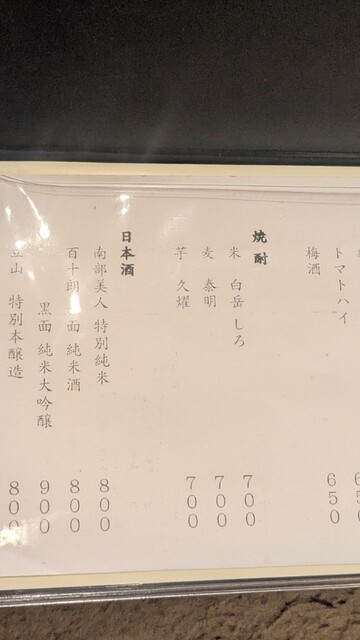 トマトハイ 650
梅酒
焼酎
米 白岳 しろ 700
麦 泰明 700
芋 久耀 700
日本酒
南部美人 特別純米 800
百十郎 面 純米酒 800
黒面 純米大吟醸 900
立山 特別本醸造 800